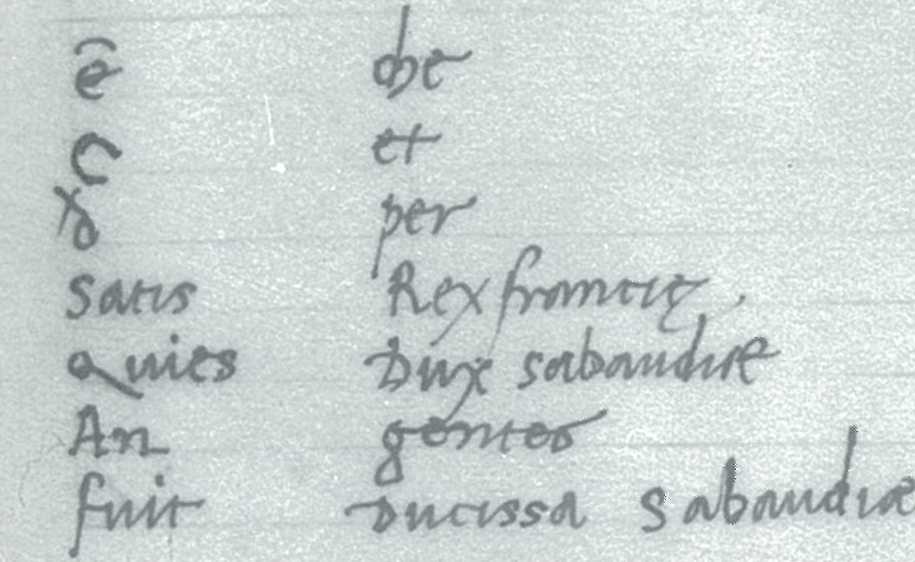 ē de
C et
per
Satis Rex francię.
Quies Dux sabaudiæ
An gentes
fuit Ducissa sabaudiæ